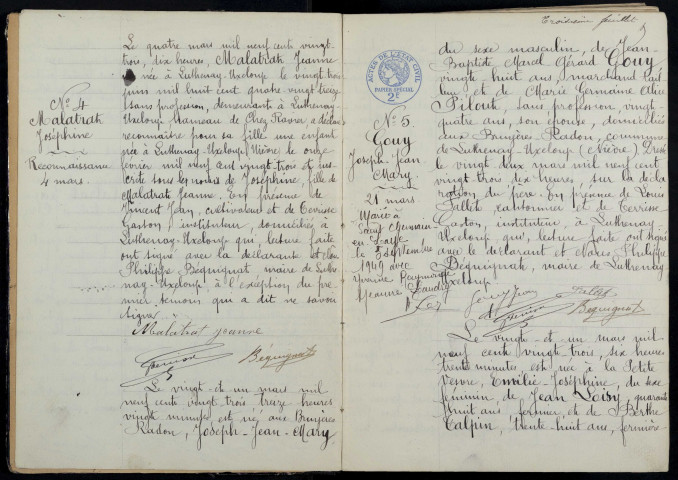 Le quatre mars mil neuf cent vingt-
trois, dix heures, Malatrat Jeanne
née à Luthenay-Uxeloup le vingt trois
juin mil huit cent quatre vingt treize
sans profession, demeurant à Luthenay-
Uxeloup hameau de Chez Ravier a déclaré
reconnaitre pour sa fille une enfant
née à Luthenay-Uxeloup Nièvre le onze
février mil neuf cent vingt trois et ins-
crite sous les noms de Joséphine, fille de
Malatrat Jeanne. En présence de
Vincent Jean, cultivateur et de Terrisse
Gaston instituteur, domiciliés à
Luthenay-Uxeloup qui, lecture faite
ont signé avec la déclarante et Nous
Philippe Béguignat, maire de Luthe-
nay-Uxeloup, à l'exception du pre-
mier témoin qui a dit ne savoir
signer
Malatrat jeanne
Béguignat
No 4
Malatrat
Joséphine
Reconnaissance
4 mars.
Le vingt-et un mars mil
neuf cent vingt trois treize heures
vingt minutes est né aux Bruyères
Radon, Joseph-Jean-Mary
Troisième feuillet
5
ACTES DE L'ÉTAT CIVIL
PAPIER SPÉCIAL
2F
No 5.
Gouy
Joseph-Jean
Mary
21 mars
Marié à
Saint Germain-
en-Laye
le 3 septembre
1949 avec
Yvonne
Jeanne
du sexe masculin, de Jean-
Baptiste Marcel Gérard Gouy
vingt huit ans, marchand tail-
leur et de Marie Germaine Alice
Piloux, sans profession, vingt-
quatre ans, son épouse, domiciliés
aux Bruyères Radon, commune
de Luthenay-Uxeloup (Nièvre) Dressé
le vingt deux mars mil neuf cent
vingt trois dix heures, sur la décla-
ration du père. En présence de Louis
Tallet, cantonnier et de Terrisse
Gaston, instituteur, à Luthenay-
Uxeloup qui, lecture faite ont signé
avec le déclarant et Nous Philippe
Béguignat, maire de Luthenay-
Uxeloup
Gouy Jean
Tallet
Béguignat
Le vingt-et un mars mil
neuf cent vingt trois, six heures
trente minutes est née à la Petite
Vesvre, Emilie-Joséphine, du sexe
féminin, de Jean Loisy, quarante
huit ans, fermier, et de Berthe
Talpin, trente-huit ans, fermière